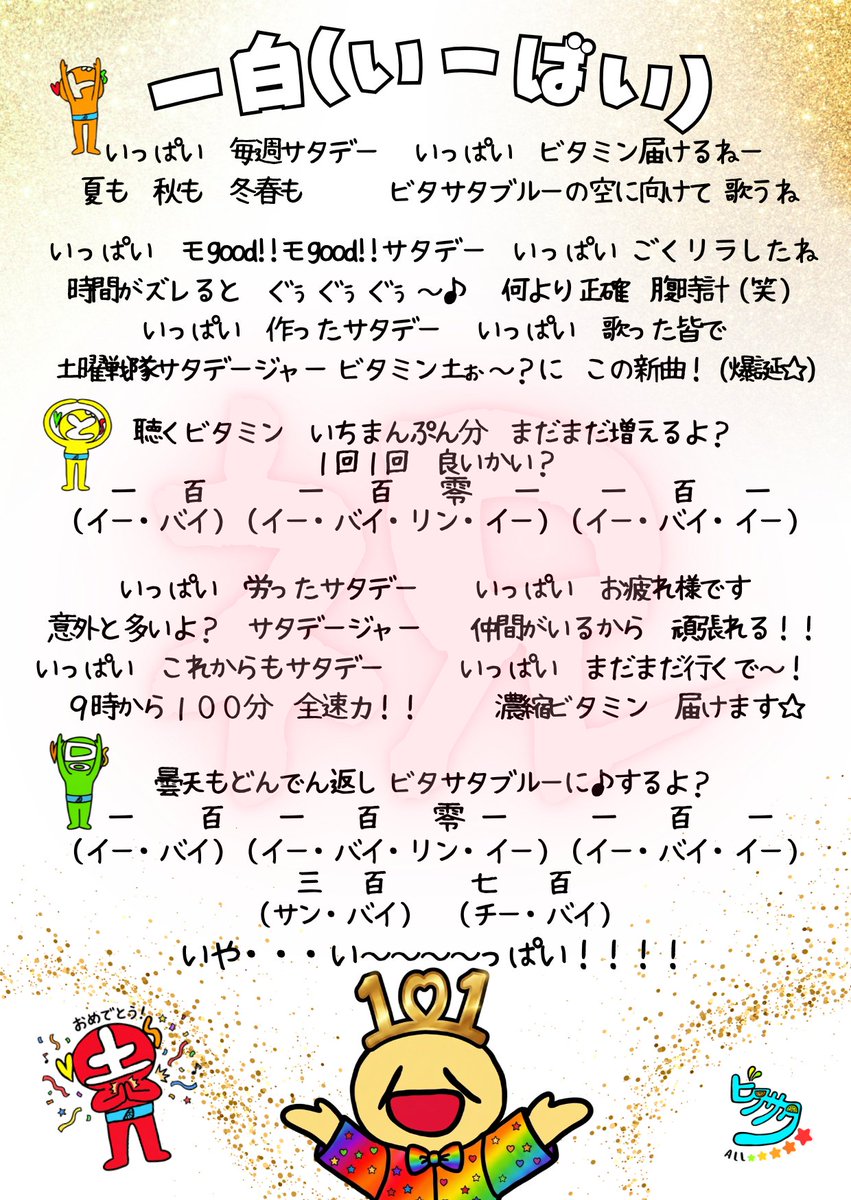 一白(いーばい)
いっぱい 毎週サタデー いっぱい ビタミン届けるねー
夏も 秋も 冬春も ビタサタブルーの空に向けて 歌うね
いっぱい モgood!!モgood!!サタデー いっぱい ごくリラしたね
時間がズレると ぐぅ ぐぅ ぐぅ ～♪ 何より正確 腹時計（笑）
いっぱい 作ったサタデー いっぱい 歌った皆で
土曜戦隊サタデージャー ビタミン土ぉ～？に この新曲！（爆誕☆）
聴くビタミン いちまんぷん分 まだまだ増えるよ？
１回１回 良いかい？
一 百 一 百 零 一 一 百 一
（イー・バイ）（イー・バイ・リン・イー）（イー・バイ・イー）
いっぱい 労ったサタデー いっぱい お疲れ様です
意外と多いよ？ サタデージャー 仲間がいるから 頑張れる！！
いっぱい これからもサタデー いっぱい まだまだ行くで～！
９時から１００分 全速力！！ 濃縮ビタミン 届けます☆
曇天もどんでん返し ビタサタブルーに♪するよ？
一 百 一 百 零 一 一 百 一
（イー・バイ）（イー・バイ・リン・イー）（イー・バイ・イー）
三 百 七 百
（サン・バイ） （チー・バイ）
いや・・・い～～～～っぱい！！！！
祝
ト
と
ド
101
おめでとう！
土
ビタサタ
ALL